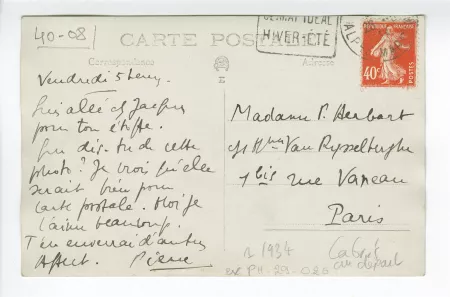 40-08
CLIMAT IDEAL
HIVER-ÉTÉ
ALP
REPUBLIQUE FRANÇAISE
40c
POSTES
CARTE POSTALE
Correspondance
Adresse
Vendredi 5
allé ch Jacques
pour ton étoffe.
Qu'en dis-tu de cette
photo? Je crois qu'elle
serait bien pour
carte postale. Moi je
l'aime beaucoup.
T'en enverrai d'autres
Affect. Pierre
Madame P. Herbart
ch Mme Van Rysselberghe
1 bis rue Vaneau
Paris
1934
au départ